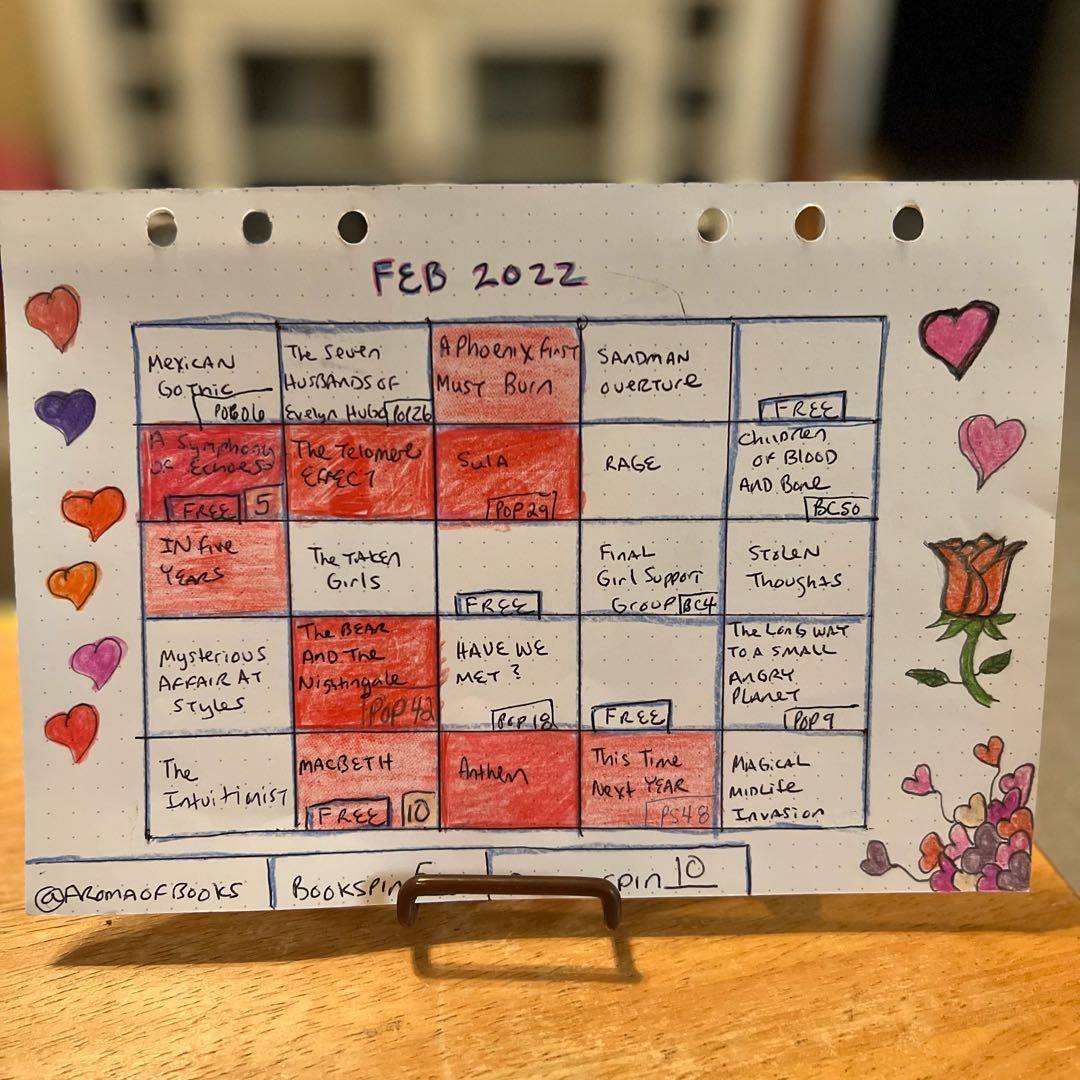 FEB 2022
MEXICAN
GOTHIC
POP26
The Seven
HUSBANDS OF
Evelyn Hugo
A Phoenix First
Must Burn
SANDMAN
OVERTURE
FREE
A Symphony
OF Echoes
FREE 5
The Telomere
EFFECT
SULA
POP 29
RAGE
Children
OF BLOOD
AND Bone
BC50
IN Five
YEARS
The TAKEN
Girls
FREE
FINAL
Girl Support
Group BC4
STOLEN
Thoughts
Mysterious
AFFAIR AT
STYLES
The BEAR
AND The
Nightingale
POP 42
HAVE WE
MET?
POP 18
FREE
The Long WAY
TO A SMALL
ANGRY
PLANET
POP 9
The
Intuitionist
MACBETH
FREE 10
Anthem
This Time
Next YEAR
PS48
MAGICAL
MIDLIFE
INVASION
@AROMAOFBOOKS
BOOKSPIN
SPIN 10